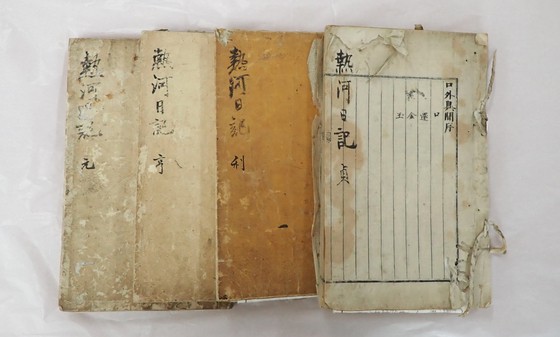 熱河日記 元
熱河日記 亨
熱河日記 利
熱河日記 貞
口外異聞序
口
金
玉